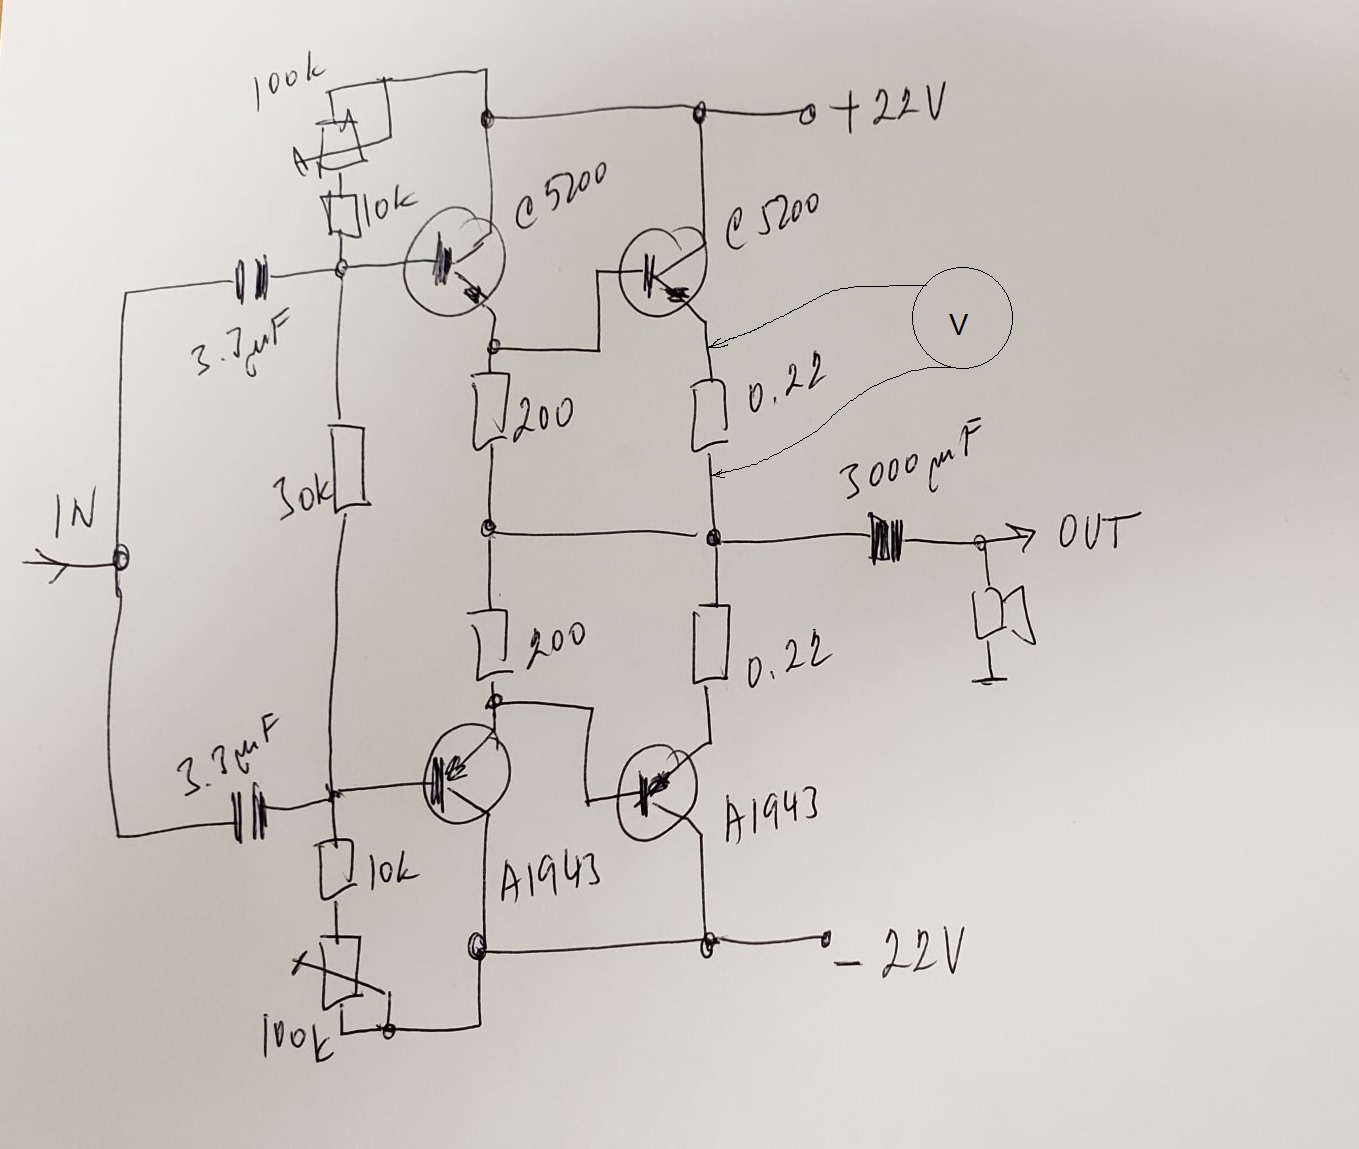 100k
+22V
10k
C5200
C5200
3.3µF
V
200
0.22
3000µF
30k
IN
OUT
200
0.22
3.3µF
10k
A1943
A1943
-22V
100k